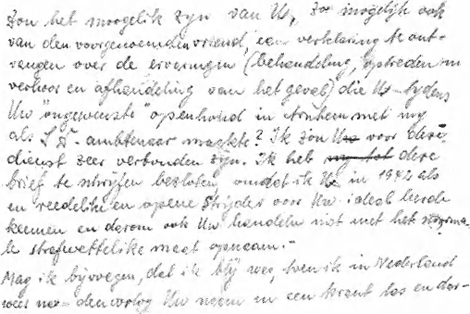 Zou het moogelik zyn van Uw, zoo mogelijk ook
van den voorgenoemden vriend, een verklaring te ont-
vangen over de ervaringen (behandeling, optreden in
verhoor en afhandeling van het geval) die Uw tydens
Uw "ongewenste" openhoud in Arnhem met my
als S.D.-ambtenaar maakte? Ik zou Uw voor dese
dienst zeer verbonden zyn. Ik heb my tot dese
brief te schrijfen besloten, omdat ik Uw in 1942 als
en reedelike en opene strijder voor Uw ideal leerde
kennen en darom ook Uw handeln niet met het norma-
le strafwettelike maat opnam."
Mag ik byvoegen, dat ik blij was, toen ik in Nederland
weer na den oorlog Uw naam in een krant las en dar-